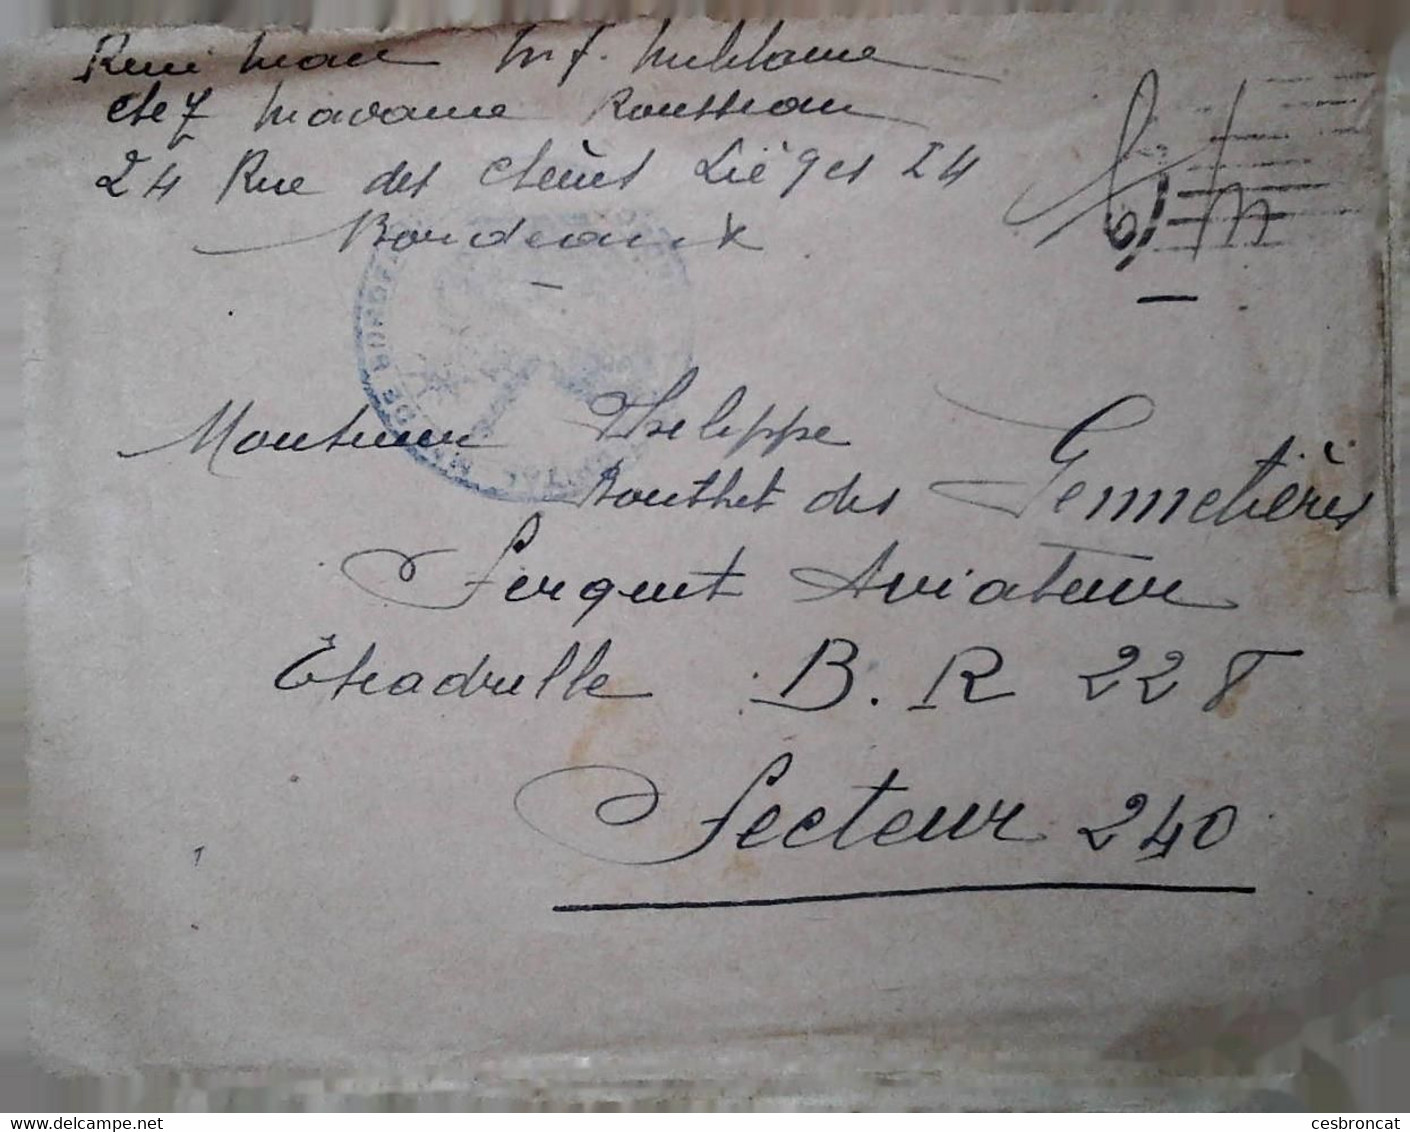 René Inf. Militaire
chez Madame Rousseau
24 Rue des chênes Lièges 24
Bordeaux
DE BORDEAUX
Monsieur Philippe
Bousset des Gennetières
Sergent Aviateur
Escadrille B.R 228
Secteur 240
delcampe.net
cesbroncat